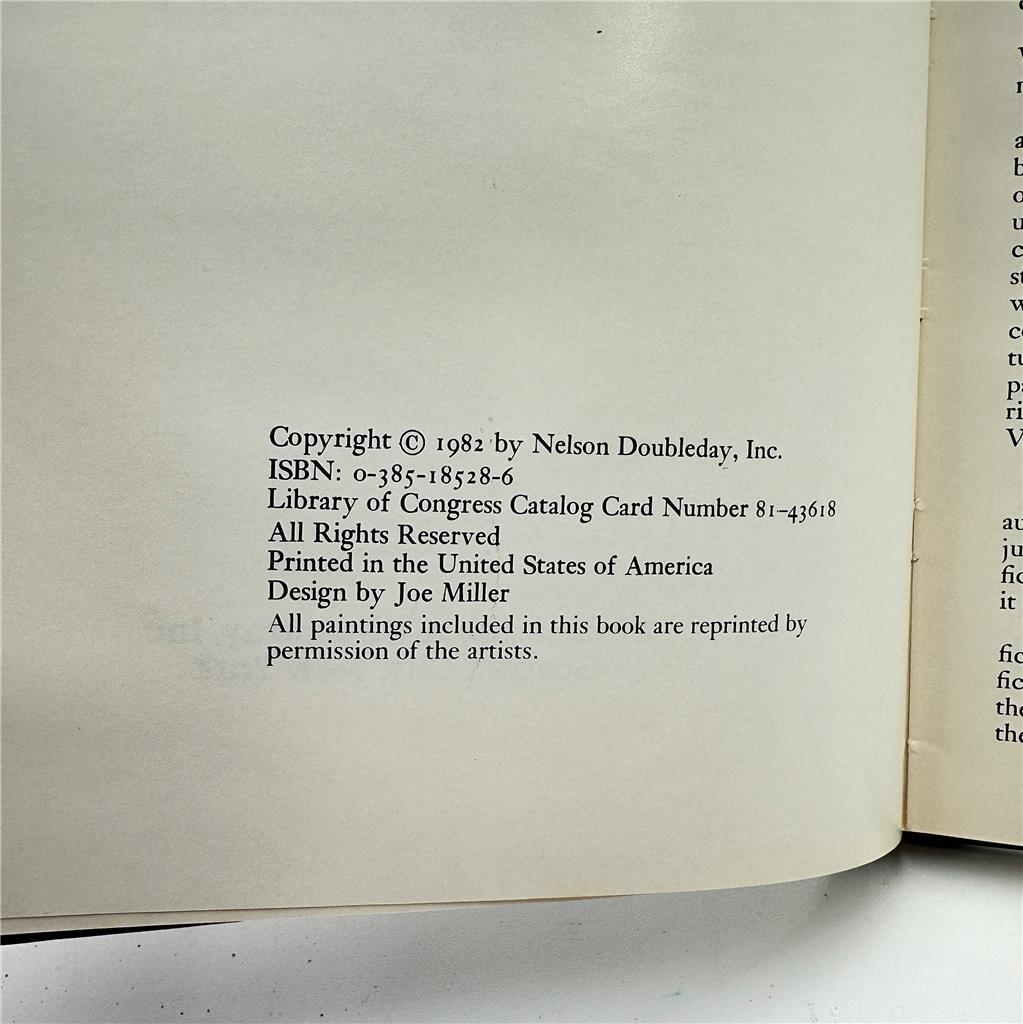 Copyright © 1982 by Nelson Doubleday, Inc.
ISBN: 0-385-18528-6
Library of Congress Catalog Card Number 81-43618
All Rights Reserved
Printed in the United States of America
Design by Joe Miller
All paintings included in this book are reprinted by
permission of the artists.